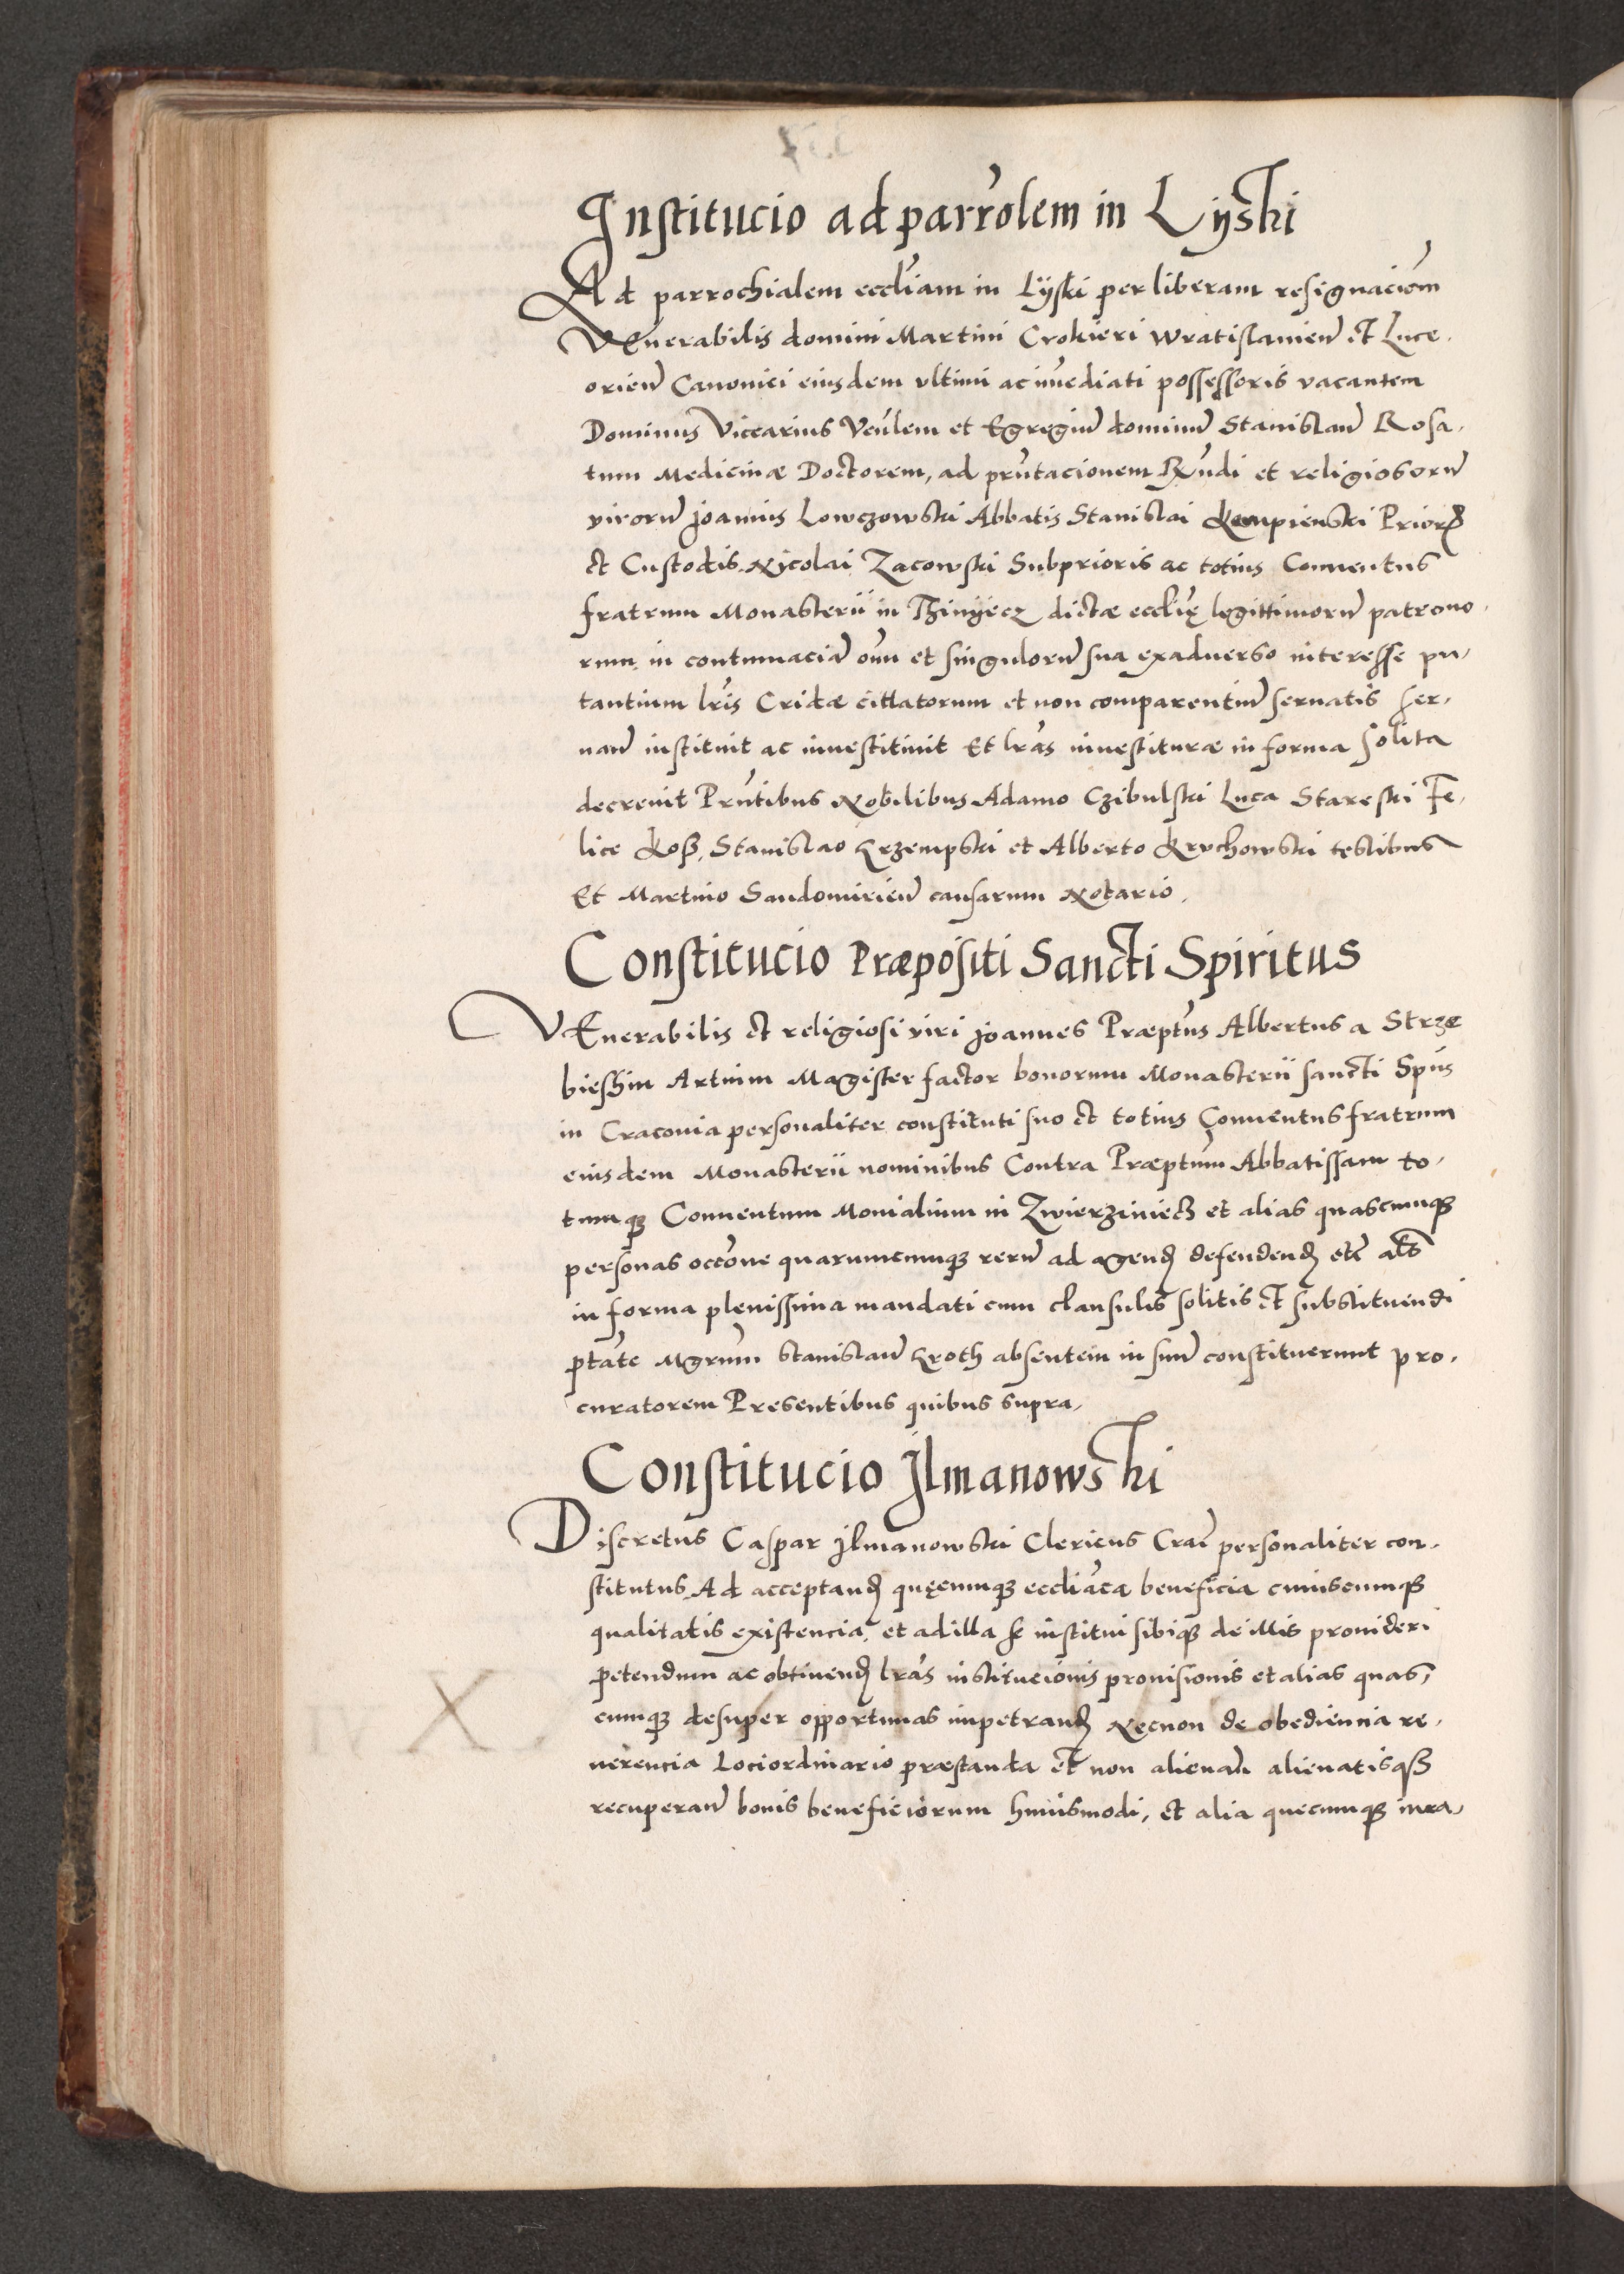 Institucio ad parrolem in Lyski
Ad parrochialem eccliam in Lyski per liberam resignaciom
Venerabilis domini Martini Crokieri Wratislavien et Luce-
orien Canonici eiusdem ultimi ac immediati possessoris vacantem
Dominus Viccarius Venlem et Egregiu dominu Stanislau Rosa-
tum Medicinæ Doctorem, ad prntacionem Rndi et religiosoru
viroru Joannis Lowczowski Abbatis Stanislai Kempienski Prioris
et Custodis Nycolai Zacowski Subprioris ac totius Conventus
fratrum Monasterii in Thinyecz dictæ ecclię legittimoru patrono-
rum in contumacia omn et singuloru sua exadverso interesse pu-
tantium lris Cridæ cittatorum et non comparentiu servatis ser-
nan instituit ac investitiuit Et lras investituræ in forma solita
decrevit Prntibus Nobilibus Adamo Czibulski Luca Stareski Fe-
lice Koß, Stanislao Krzempski et Alberto Kruchowski testibus
Et Martino Sandomirien causarum Notario.
Constitucio Præpositi Sancti Spiritus
Venerabilis et religiosi viri Joannes Præptus Albertus a Strze
bieshin Artium Magister factor bonorum Monasterii sancti Spus
in Cracovia personaliter constituti suo et totius Conventus fratrum
eiusdem Monasterii nominibus Contra Præptum Abbatissam to-
tumq Conventum Monialium in Zwierziniecz et alias quascumq
personas occone quarumcumq reru ad agend defendend etc als
in forma plenissima mandati cum clausulis solitis et substituendi
ptate Mgrum Stanislau Kroth absentem in suu constituerunt pro-
curatorem Presentibus quibus supra,
Constitucio Jlmanowski
Discretus Caspar Jlmanowski Clericus Crac personaliter con-
stitutus Ad acceptand quęcumq eccliaca beneficia cuiuscumq
qualitatis existencia, et ad illa se institui sibiq de illis provideri
petendum ac obtinend lras institucionis provisionis et alias quas-
cumq desuper opportunas impetrand Necnon de obediencia re-
verencia Lociordinario præstanda et non alienan alienatisq
recuperan bonis beneficiorum hmoismodi, et alia quecumq iura-